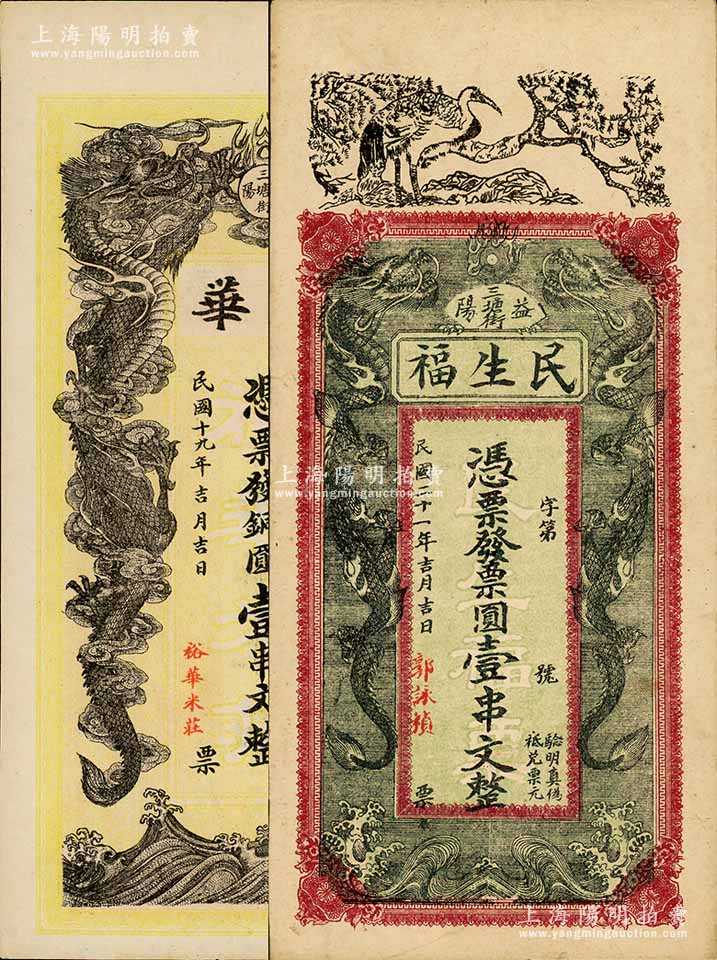 上海陽明拍賣
www.yangmingauction.com
三
塘
陽
街
華
憑票發銅圓壹串文整
民國十九年吉月吉日
裕華米莊
票
益
三塘街
陽
民生福
字第
號
憑票發票圓壹串文整
驗明真偽
祗兌票元
民國二十一年吉月吉日
郭詠楨
票
上海陽明拍賣
www.yangmingauction.com
上海陽明拍賣
www.yangmingauction.com